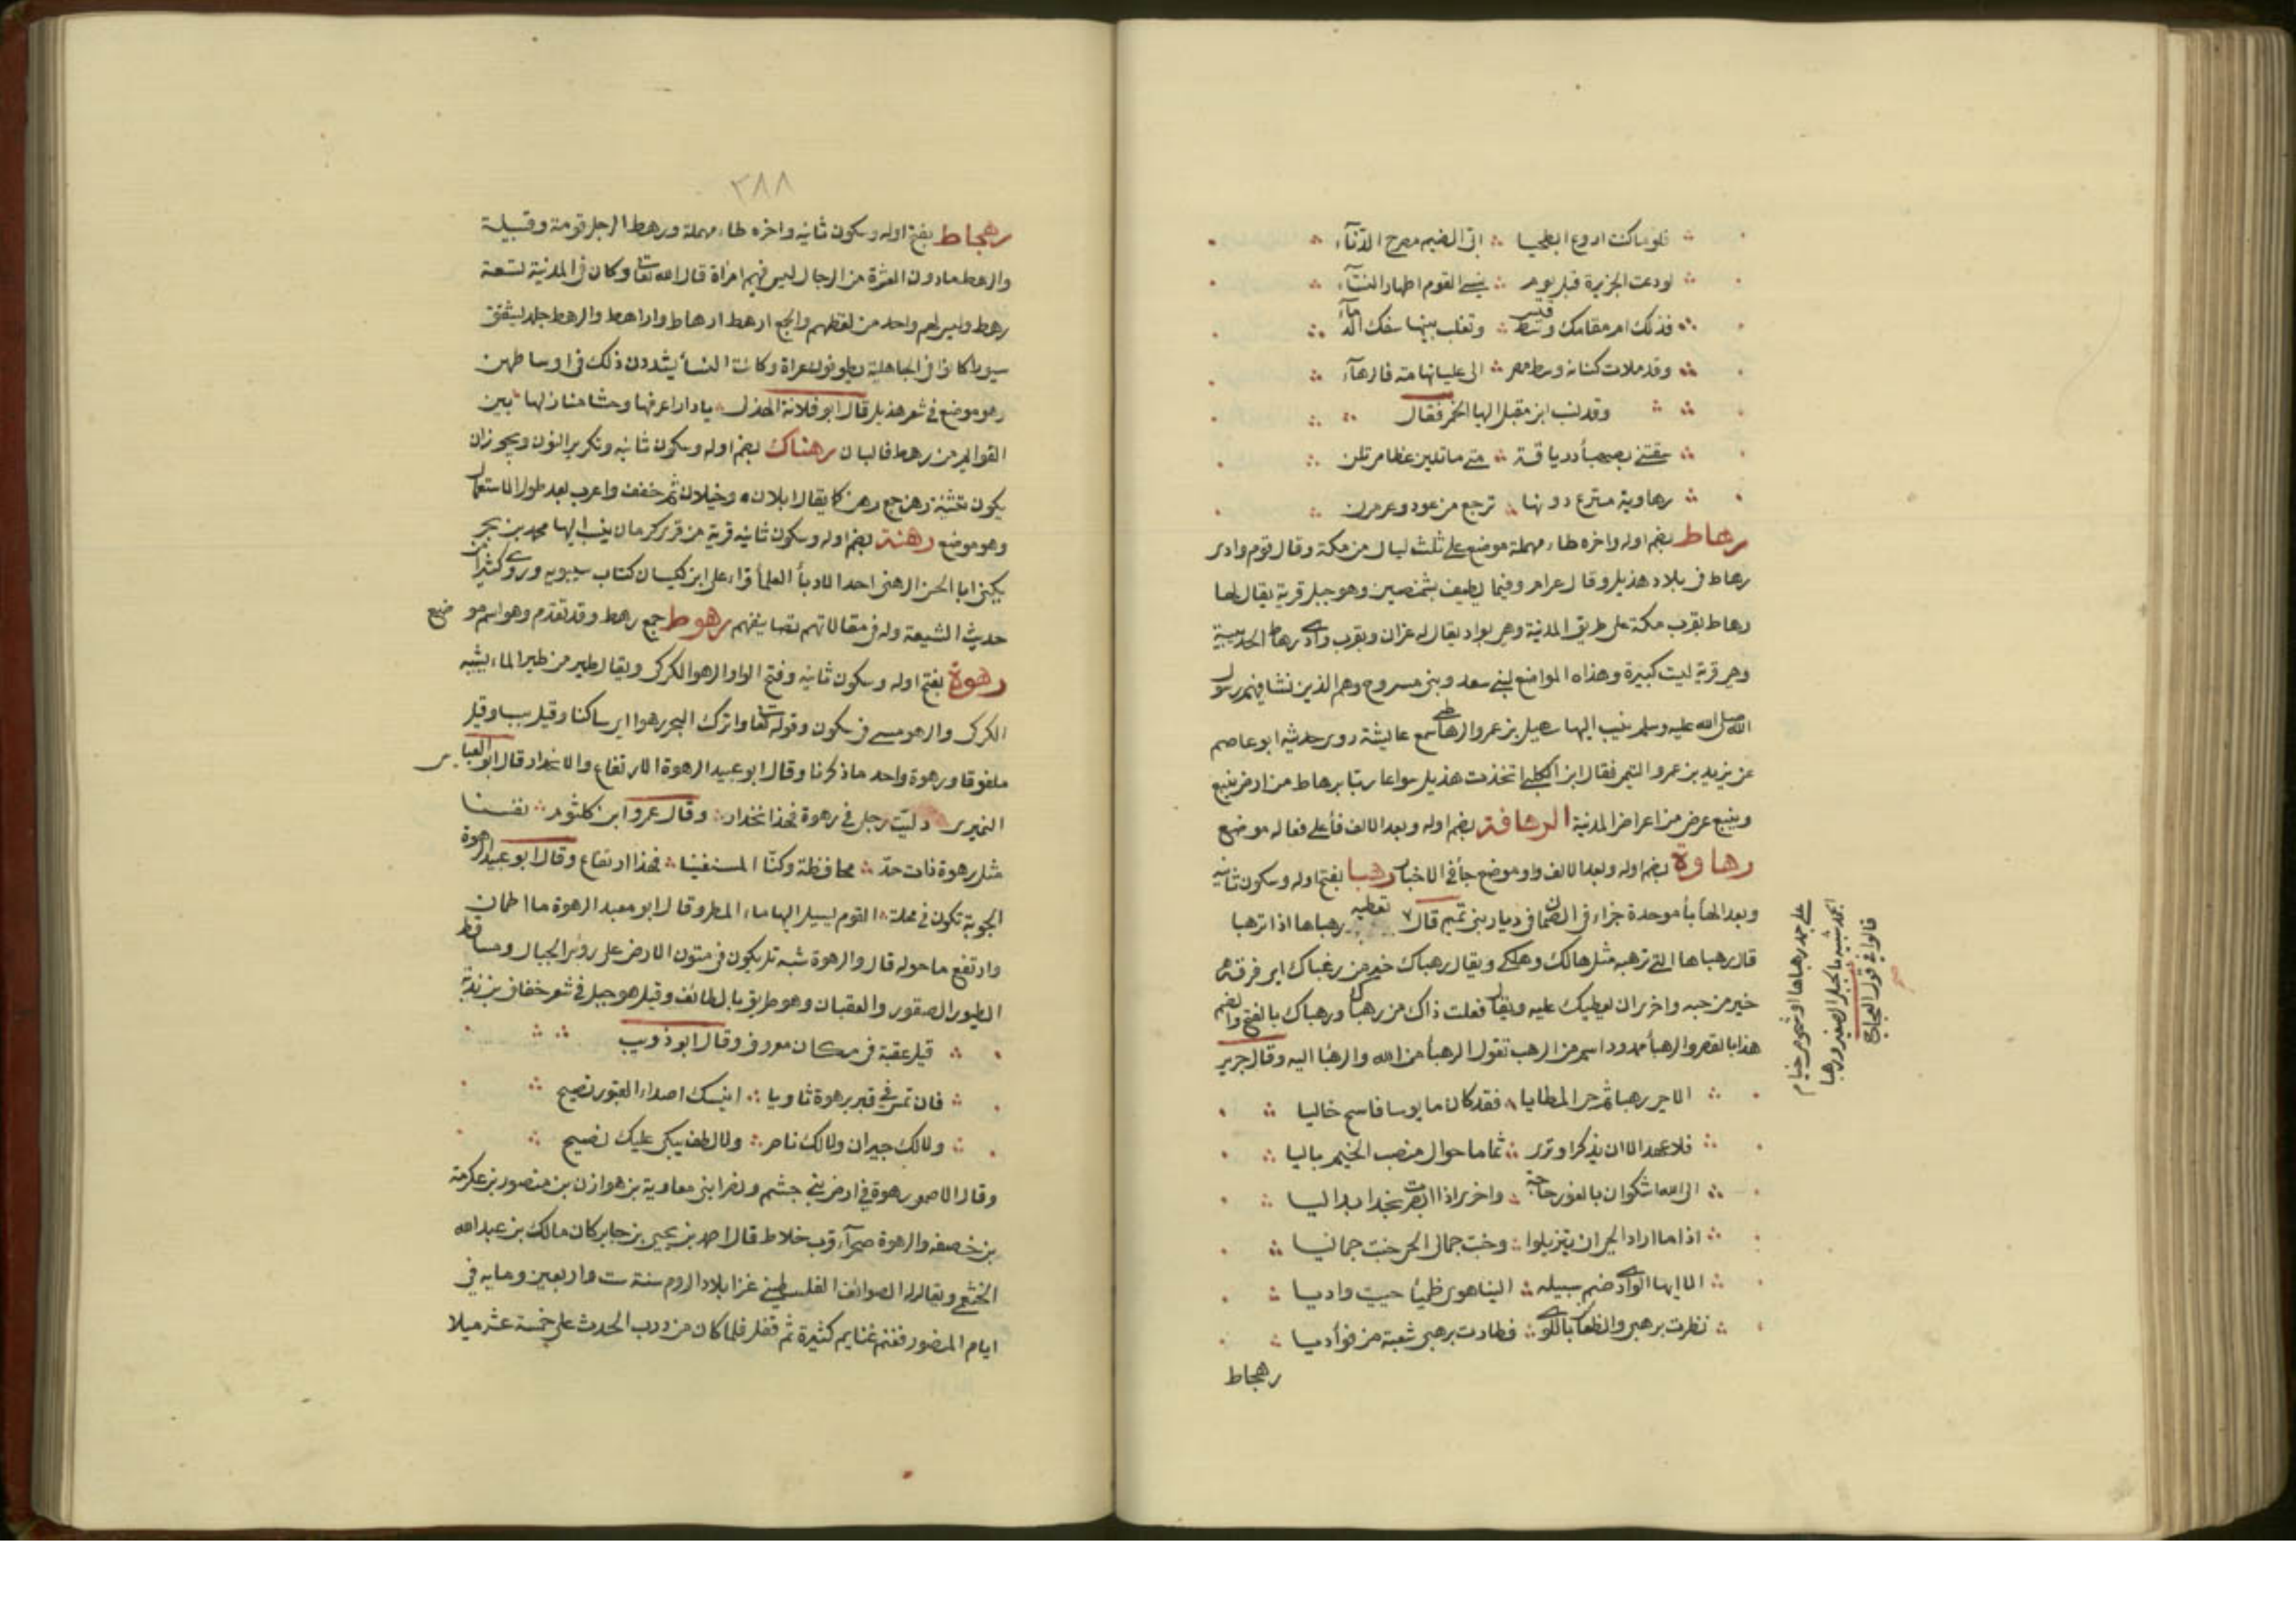 فلو ما كنت اروع ابطحيا ؞ ابى الضيم مطرح الدناء
لودعت الجزيرة قبل يوم ؞ ينسي القوم اطهار النساء
فذلك ام مقامك وسط قيس ؞ وتغلب بينها سفك الدماء
وقد ملات كنانة وسط مصر ؞ الى عليا تهامة فالرهاء
وقد نسب ابن مقبل اليها الخمر فقال
سقتني بصهباء درياقة ؞ متى ما تلين عظامي تلن
رهاوية مترع دونها ؞ ترجع من عود وعر مرن
رهاط بضم اوله واخره طاء مهملة موضع على ثلث ليال من مكة وقال قوم وادى
رهاط فى بلاد هذيل وقال عرام وفيما يطيف بشمنصير وهو جبل قرية يقال لها
رهاط بقرب مكة على طريق المدينة وهى بواد يقال له غران وبقرب وادى رهاط الحديبية
وهى قرية ليست كبيرة وهذه المواضع لبنى سعد وبنى مسروح وهم الذين نشا فيهم رسول
الله صلى الله عليه وسلم ينسب اليها سهيل بن عمرو الرهاطى سمع عايشة روى حديثه ابو عاصم
عن يزيد بن عمرو التيمى فقال ابن الكلبى اتخذت هذيل سواعا ربا برهاط من ارض ينبع
وينبع عرض من اعراض المدينة الرهافة بضم اوله وبعد الالف فاء على فعاله موضع
رهاوة بضم اوله وبعد الالف واو موضع جاء فى الاخبار رهبا بفتح اوله وسكون ثانيه
وبعد الهاء باء موحدة خبراء فى الصمان فى ديار بنى تميم قال تعطيه رهباها اذا ترهبا
قال رهباها التى ترهبه مثل هالك وهلكى ويقال رهباك خير من رغباك اى فرقه
خير من حبه واحرى ان يعطيك عليه ويقال فعلت ذاك من رهباك ورهباك بالفتح والضم
هذا بالقصر والرهباء ممدود اسم من الرهب تقول الرهباء من الله والرغباء اليه وقال جرير
الا حى رهبا ثم حى المطاليا ؞ فقد كان مانوسا فاسمى خاليا
فلا عهد الا ان يذكر او ترى ؞ ثماما حوالى منصب الخيم باليا
الى الله اشكو ان بالغور حاجة ؞ واخرى اذا ابصرت نجدا بدا ليا
اذا ما اراد الحى ان يتزيلوا ؞ وحنت جمال الحى حنت جماليا
الا ايها الوادى الذى ضم سيله ؞ الينا هوى ظمياء حييت واديا
نظرت برهبى والظعائن باللوى ؞ فطارت برهبى شعبة من فؤاديا
رهجاط
قالوا فى قول العجاج
على جمد رهباها او شخوص خيام
٢٨٨
رهجاط بفتح اوله وسكون ثانيه واخره طاء مهملة ورهط الرجل قومه وقبيلة
والرهط ما دون العشرة من الرجال ليس فيهم امراة قال الله تعالى وكان فى المدينة تسعة
رهط وليس لهم واحد من لفظهم والجمع ارهط ارهاط واراهط والرهط جلد يشقق
سيورا كانوا فى الجاهلية يطوفون عراة وكانت النساء يشددن ذلك فى اوساطهن
وهو موضع فى شعر هذيل قال ابو قلابة الهذلى ؞ يا دار اعرفها وحشا منازلها ؞ بين
القوايم من رهط فالبان رهنان بضم اوله وسكون ثانيه وتكرير النون ويجوز ان
يكون تثنية رهن جمع رهن كما يقال ابلان وخيلان ثم خفف واعرب بعد طول الاستعمال
وهو موضع رهنة بضم اوله وسكون ثانيه قرية من قرى كرمان ينسب اليها محمد بن بحر
يكنى ابا الحسن الرهنى احد الادباء العلماء قراء على ابن كيسان كتاب سيبويه وروى كثيرا من
حديث الشيعة وله فى مقالاتهم تصانيفهم رهوط جمع رهط وقد تقدم وهو اسم موضع
رهوة بفتح اوله وسكون ثانيه وفتح الواو الرهو الكركى ويقال طير من طير الماء يشبه
الكركى والرهو مشى فى سكون وقوله تعالى واترك البحر رهوا اى ساكنا وقيل يبسا وقيل
ملفوقا ورهوة واحد ما ذكرنا وقال ابو عبيد الرهوة الارتفاع والانحدار قال ابو العباس
النميرى دليت رجلى فى رهوة فهذا انحدار ؞ وقال عمرو ابن كلثوم ؞ نصبنا
مثل رهوة ذات حد ؞ محافظة وكنا المسنفينا ؞ فهذا ارتفاع وقال ابو عبيد الرهوة
الجوبة تكون فى محلة القوم يسيل اليها ماء المطر وقال ابو معبد الرهوة ما اطمان
وارتفع ما حوله قال والرهوة شبه تل يكون فى متون الارض على روس الجبال ومساقط
الطيور الصقور والعقبان وهو طريق بالطائف وقيل هو جبل فى شعر خفاف بن ندبة
قيل عقبة فى مكان معروف وقال ابو ذويب
فان تمس فى قبر برهوة ثاويا ؞ انيسك اصداء القبور تصيح
ولا لك جيران ولا لك ناصر ؞ ولا لطف يبكى عليك نصيح
وقال الاصمعى رهوة فى ارض بنى جشم ونصر ابنى معاوية بن هوازن بن منصور بن عكرمة
بن خصفه والرهوة صحراء قرب خلاط قال احمد بن يحيى بن جابر كان مالك بن عبد الله
الخثعمى ويقال له الصوائف الفلسطينى غزا بلاد الروم سنة ست واربعين ومايه فى
ايام المنصور فغنم غنايم كثيرة ثم قفل فلما كان من درب الحدث على خمسة عشر ميلا